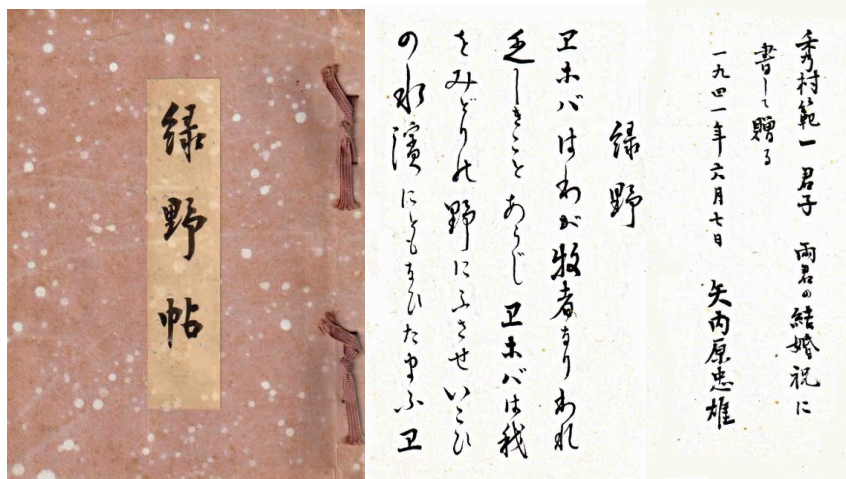 緑野帖
秀村範一 君子 兩君の結婚祝に
書して贈る
一九四一年六月七日 矢内原忠雄
緑野
ヱホバはわが牧者なりわれ
乏しきことあらじヱホバは我
をみどりの野にふさせいこひ
の水濱にともなひたまふヱ